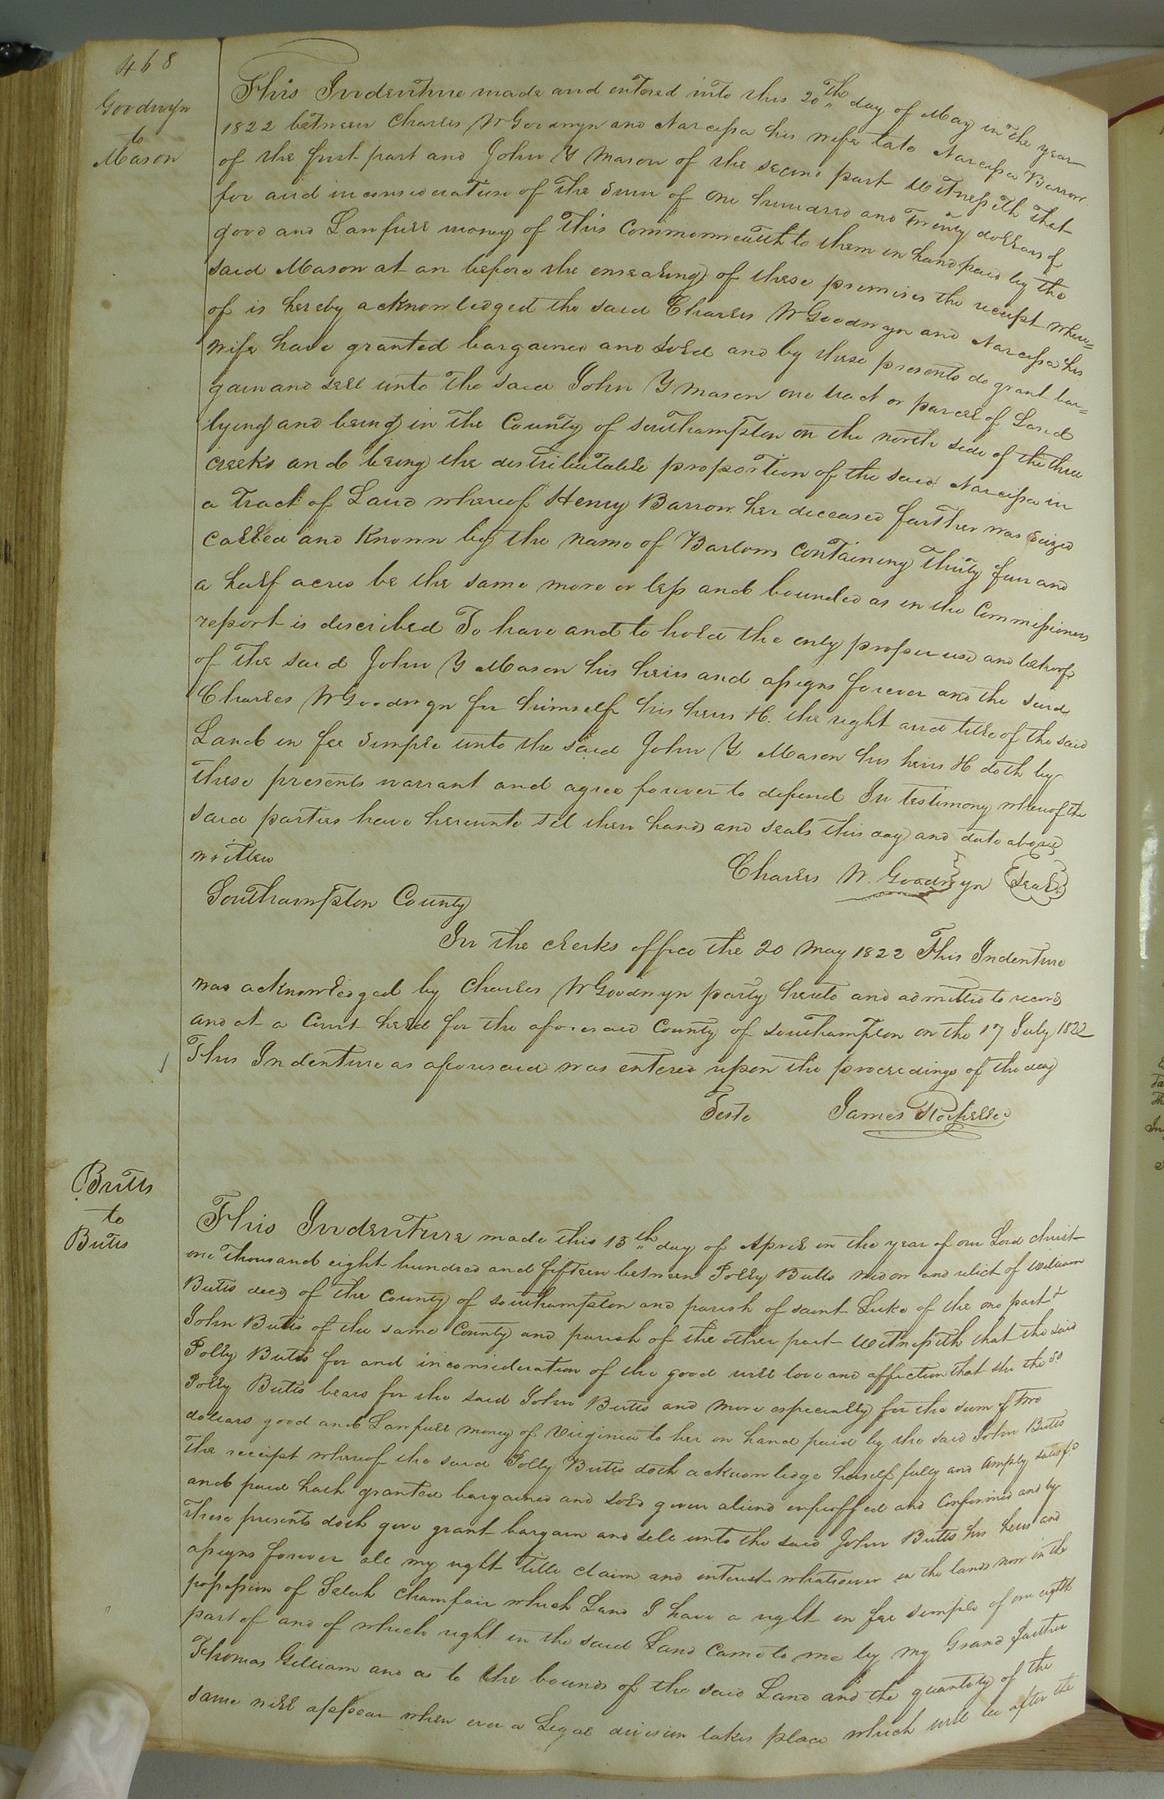 468
Goodwyn
to
Mason
This Indenture made and entered into this 20th day of May in the year
1822 between Charles W Goodwyn and Narcissa his wife late Narcissa Barrow
of the first part and John Y Mason of the second part Witnesseth that
for and in consideration of the Sum of one hundred and twenty dollars of
good and Lawfull money of this Commonwealth to them in hand paid by the
said Mason at an before the ensealing of these premises the receipt where=
of is hereby acknowledged the said Charles W Goodwyn and Narcissa his
wife have granted bargained and sold and by these presents do grant bar=
gain and sell unto the said John Y Mason one tract or parcel of Land
lying and being in the County of Southampton on the north side of the three
creeks and being the distributable proportion of the said Narcissa in
a tract of Land whereof Henry Barrow her deceased farther was seized
called and known by the name of Bartons containing thirty four and
a half acres be the same more or less and bounded as in the Commissioners
report is described To have and to hold the only proper use and behoof
of the said John Y Mason his heirs and assigns forever and the said
Charles W Goodwyn for himself his heirs &c. the right and title of the said
Land in fee simple unto the said John Y Mason his heirs &c doth by
these presents warrant and agree forever to defend In testimony whereof the
said parties have hereunto set their hands and seals this day and date above
written
Charles W. Goodwyn {Seal}
Southampton County
In the clerks office the 20 May 1822 This Indenture
was acknowledged by Charles W Goodwyn party hereto and admitted to record
and at a Court held for the aforesaid County of Southampton on the 17 July 1822
This Indenture as aforesaid was entered upon the proceedings of the day
Teste James Rochelle
Butts
to
Butts
This Indenture made this 15th day of April in the year of our Lord christ
one thousand eight hundred and fifteen between Polly Butts widow and relict of William
Butts decd of the County of Southampton and parish of saint Luke of the one part &
John Butts of the same County and parish of the other part Witnesseth that the said
Polly Butts for and in consideration of the good will love and affection that she the sd
Polly Butts bears for the said John Butts and more especially for the sum of two
dollars good and Lawfull money of Virginia to her in hand paid by the said John Butts
the receipt whereof the said Polly Butts doth acknowledge herself fully and amply satisfd
and paid hath granted bargained and sold given aliend enfeoffed and Confirmed and by
these presents doth give grant bargain and sell unto the said John Butts his heirs and
assigns forever all my right title claim and interest whatsoever in the lands now in the
possession of Selah which Land I have a right in fee simple of one eighth
part of and of which right in the said Land came to me by my Grand farther
Thomas Gilliam and as to the bounds of the said Land and the quantity of the
same will appear when ever a Legal division takes place which will be after the